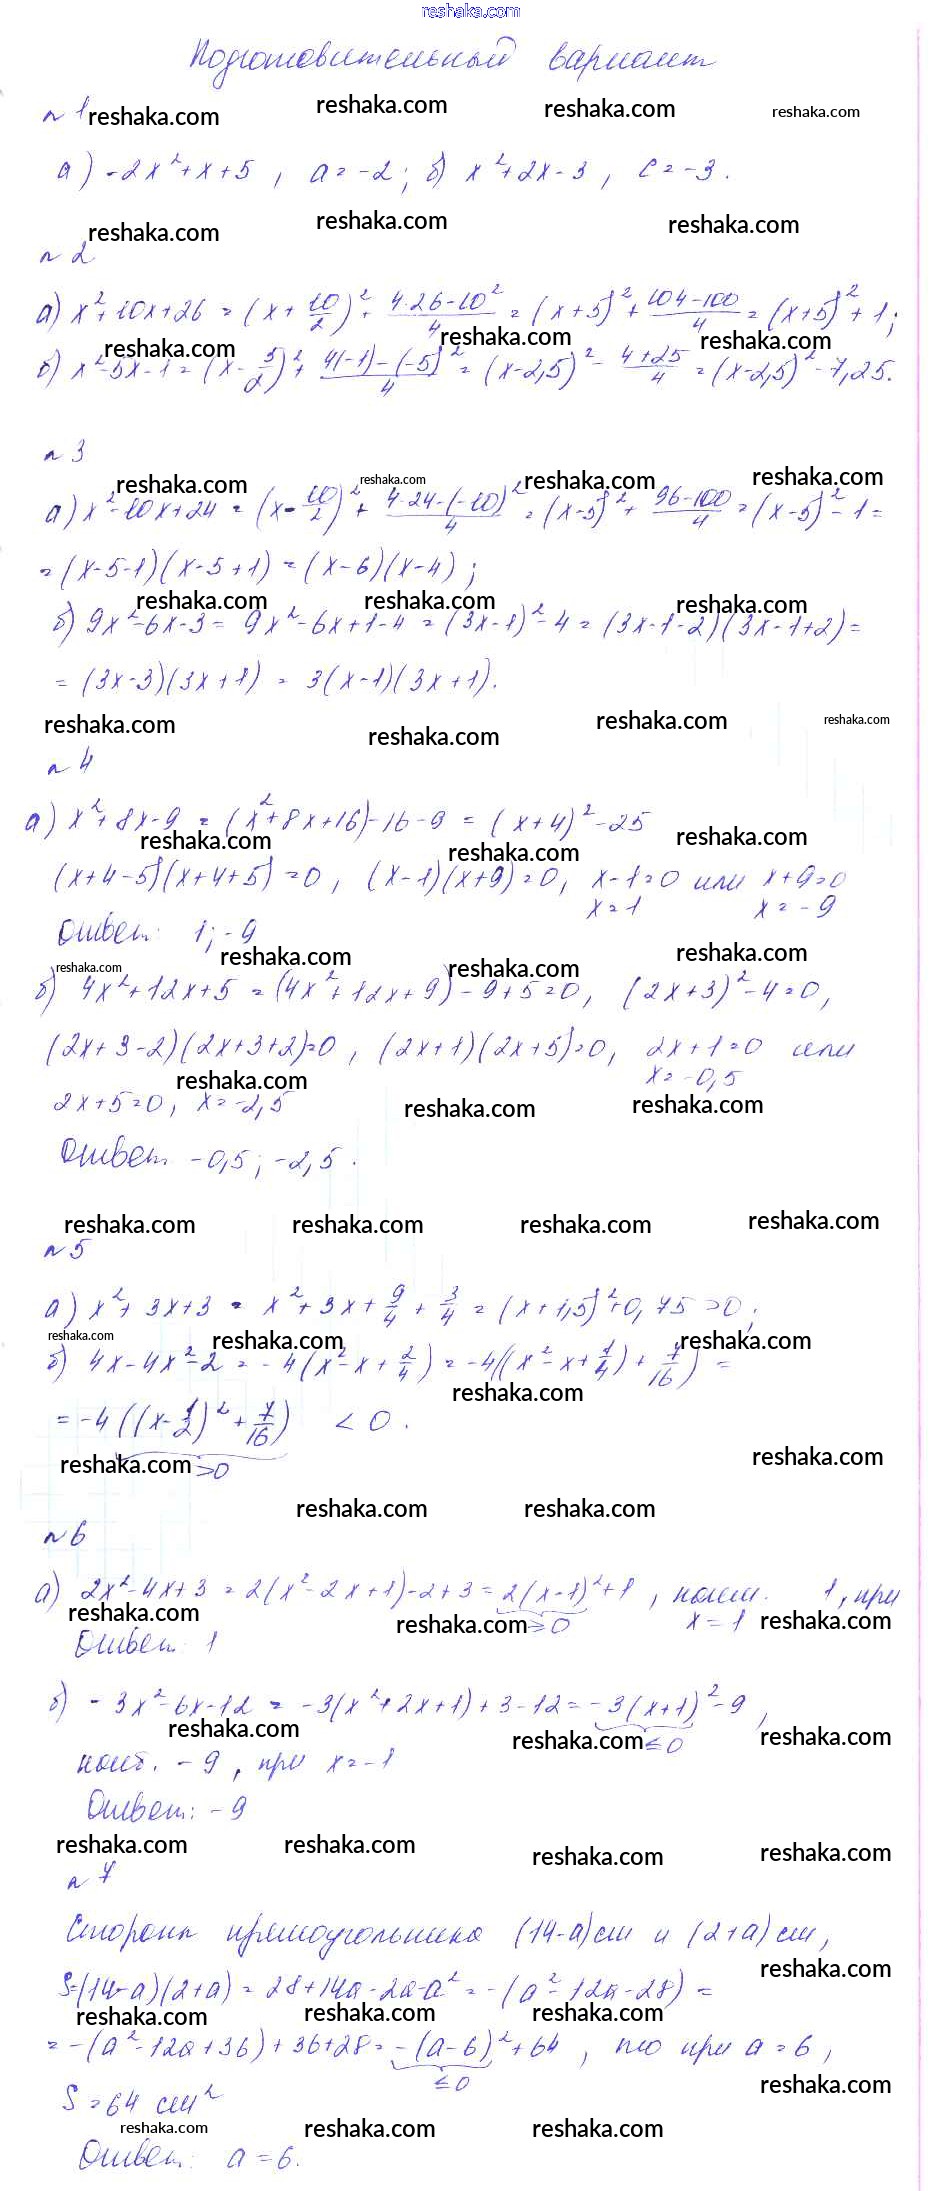 reshaka.com
Подготовительный вариант
reshaka.com reshaka.com reshaka.com
№ 1 reshaka.com
а) -2x²+x+5, a=-2; б) x²+2x-3, c=-3.
reshaka.com reshaka.com reshaka.com
№ 2
а) x²+10x+26 = (x+10/2)²+ (4·26-10²)/4 = (x+5)²+ (104-100)/4 = (x+5)²+1;
reshaka.com reshaka.com reshaka.com
б) x²-5x-1 = (x-5/2)²+ (4(-1)-(-5)²)/4 = (x-2,5)² - (4+25)/4 = (x-2,5)²-7,25.
№ 3
reshaka.com reshaka.com reshaka.com reshaka.com
а) x²-10x+24 = (x-10/2)²+ (4·24-(-10)²)/4 = (x-5)²+ (96-100)/4 = (x-5)²-1 =
= (x-5-1)(x-5+1) = (x-6)(x-4);
reshaka.com reshaka.com reshaka.com
б) 9x²-6x-3 = 9x²-6x+1-4 = (3x-1)²-4 = (3x-1-2)(3x-1+2) =
= (3x-3)(3x+1) = 3(x-1)(3x+1).
reshaka.com reshaka.com reshaka.com reshaka.com
№ 4
а) x²+8x-9 = (x²+8x+16)-16-9 = (x+4)²-25
reshaka.com reshaka.com reshaka.com
(x+4-5)(x+4+5)=0, (x-1)(x+9)=0, x-1=0 или x+9=0
x=1 x=-9
Ответ: 1; -9
reshaka.com reshaka.com reshaka.com reshaka.com
б) 4x²+12x+5 = (4x²+12x+9)-9+5=0, (2x+3)²-4=0,
(2x+3-2)(2x+3+2)=0, (2x+1)(2x+5)=0, 2x+1=0 или
x=-0,5
reshaka.com reshaka.com reshaka.com
2x+5=0, x=-2,5
Ответ: -0,5; -2,5.
reshaka.com reshaka.com reshaka.com reshaka.com
№ 5
а) x²+3x+3 = x²+3x+9/4+3/4 = (x+1,5)²+0,75>0;
reshaka.com reshaka.com reshaka.com
б) 4x-4x²-2 = -4(x²-x+2/4) = -4((x²-x+1/4)+7/16) =
reshaka.com
= -4((x-1/2)²+7/16) <0.
reshaka.com >0 reshaka.com
reshaka.com reshaka.com
№ 6
а) 2x²-4x+3 = 2(x²-2x+1)-2+3 = 2(x-1)²+1, наим. 1, при
reshaka.com reshaka.com ≥0 x=1 reshaka.com
Ответ: 1
б) -3x²-6x-12 = -3(x²+2x+1)+3-12 = -3(x+1)²-9,
reshaka.com reshaka.com ≤0 reshaka.com
наиб. -9, при x=-1
Ответ: -9
reshaka.com reshaka.com reshaka.com reshaka.com
№ 7
Стороны прямоугольника (14-a)см и (2+a)см,
reshaka.com
S=(14-a)(2+a) = 28+14a-2a-a² = -(a²-12a-28) =
reshaka.com reshaka.com reshaka.com
= -(a²-12a+36)+36+28 = -(a-6)²+64, это при a=6,
≤0 reshaka.com
S=64 см²
reshaka.com reshaka.com reshaka.com
Ответ: a=6.